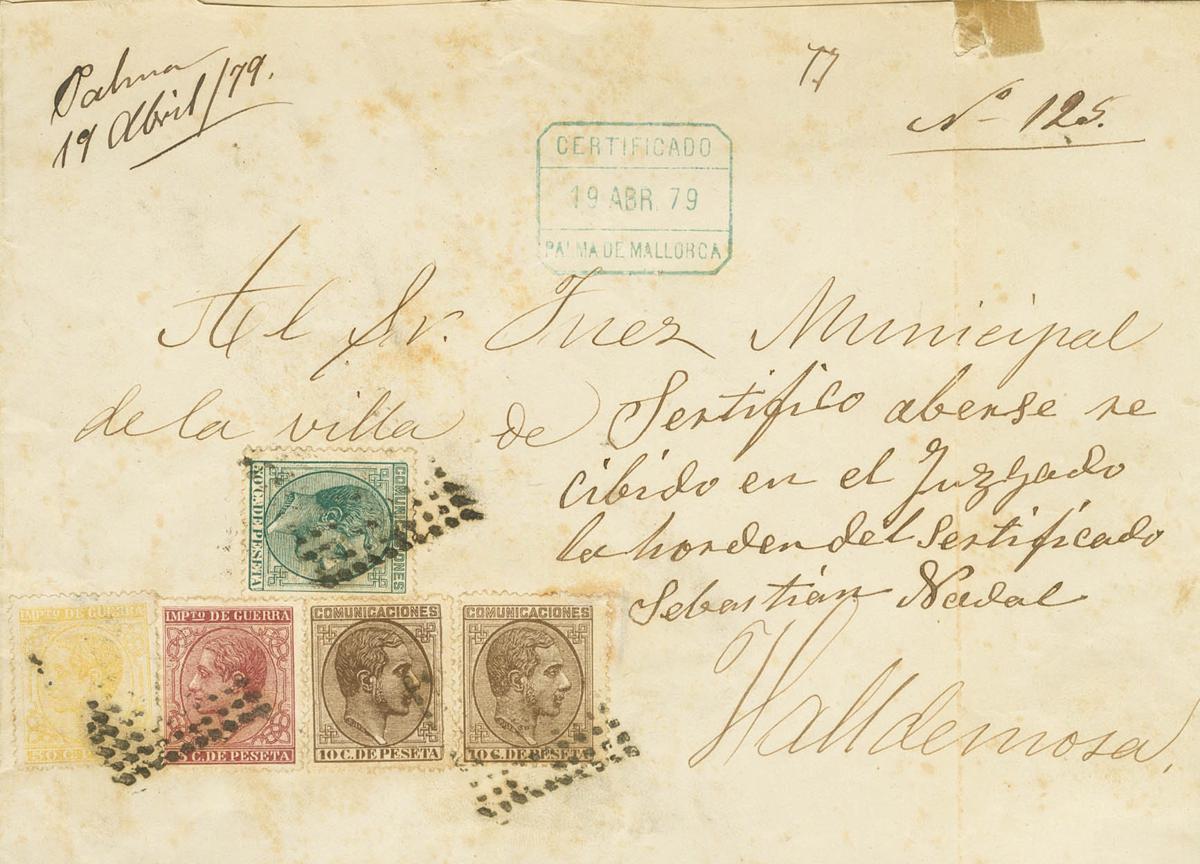 Palma
19 Abril/79.
77
Nº 125.
CERTIFICADO
19 ABR. 79
PALMA DE MALLORCA
Al Sr. Juez Municipal
de la villa de
Sertifico aberse re
cibido en el Juzgado
la horden del Sertificado
Sebastián Nadal
Valldemosa,
COMUNICACIONES
50 C. DE PESETA
IMPTO DE GUERRA
50 C.
IMPTO DE GUERRA
5 C. DE PESETA
COMUNICACIONES
10 C. DE PESETA
COMUNICACIONES
10 C. DE PESETA